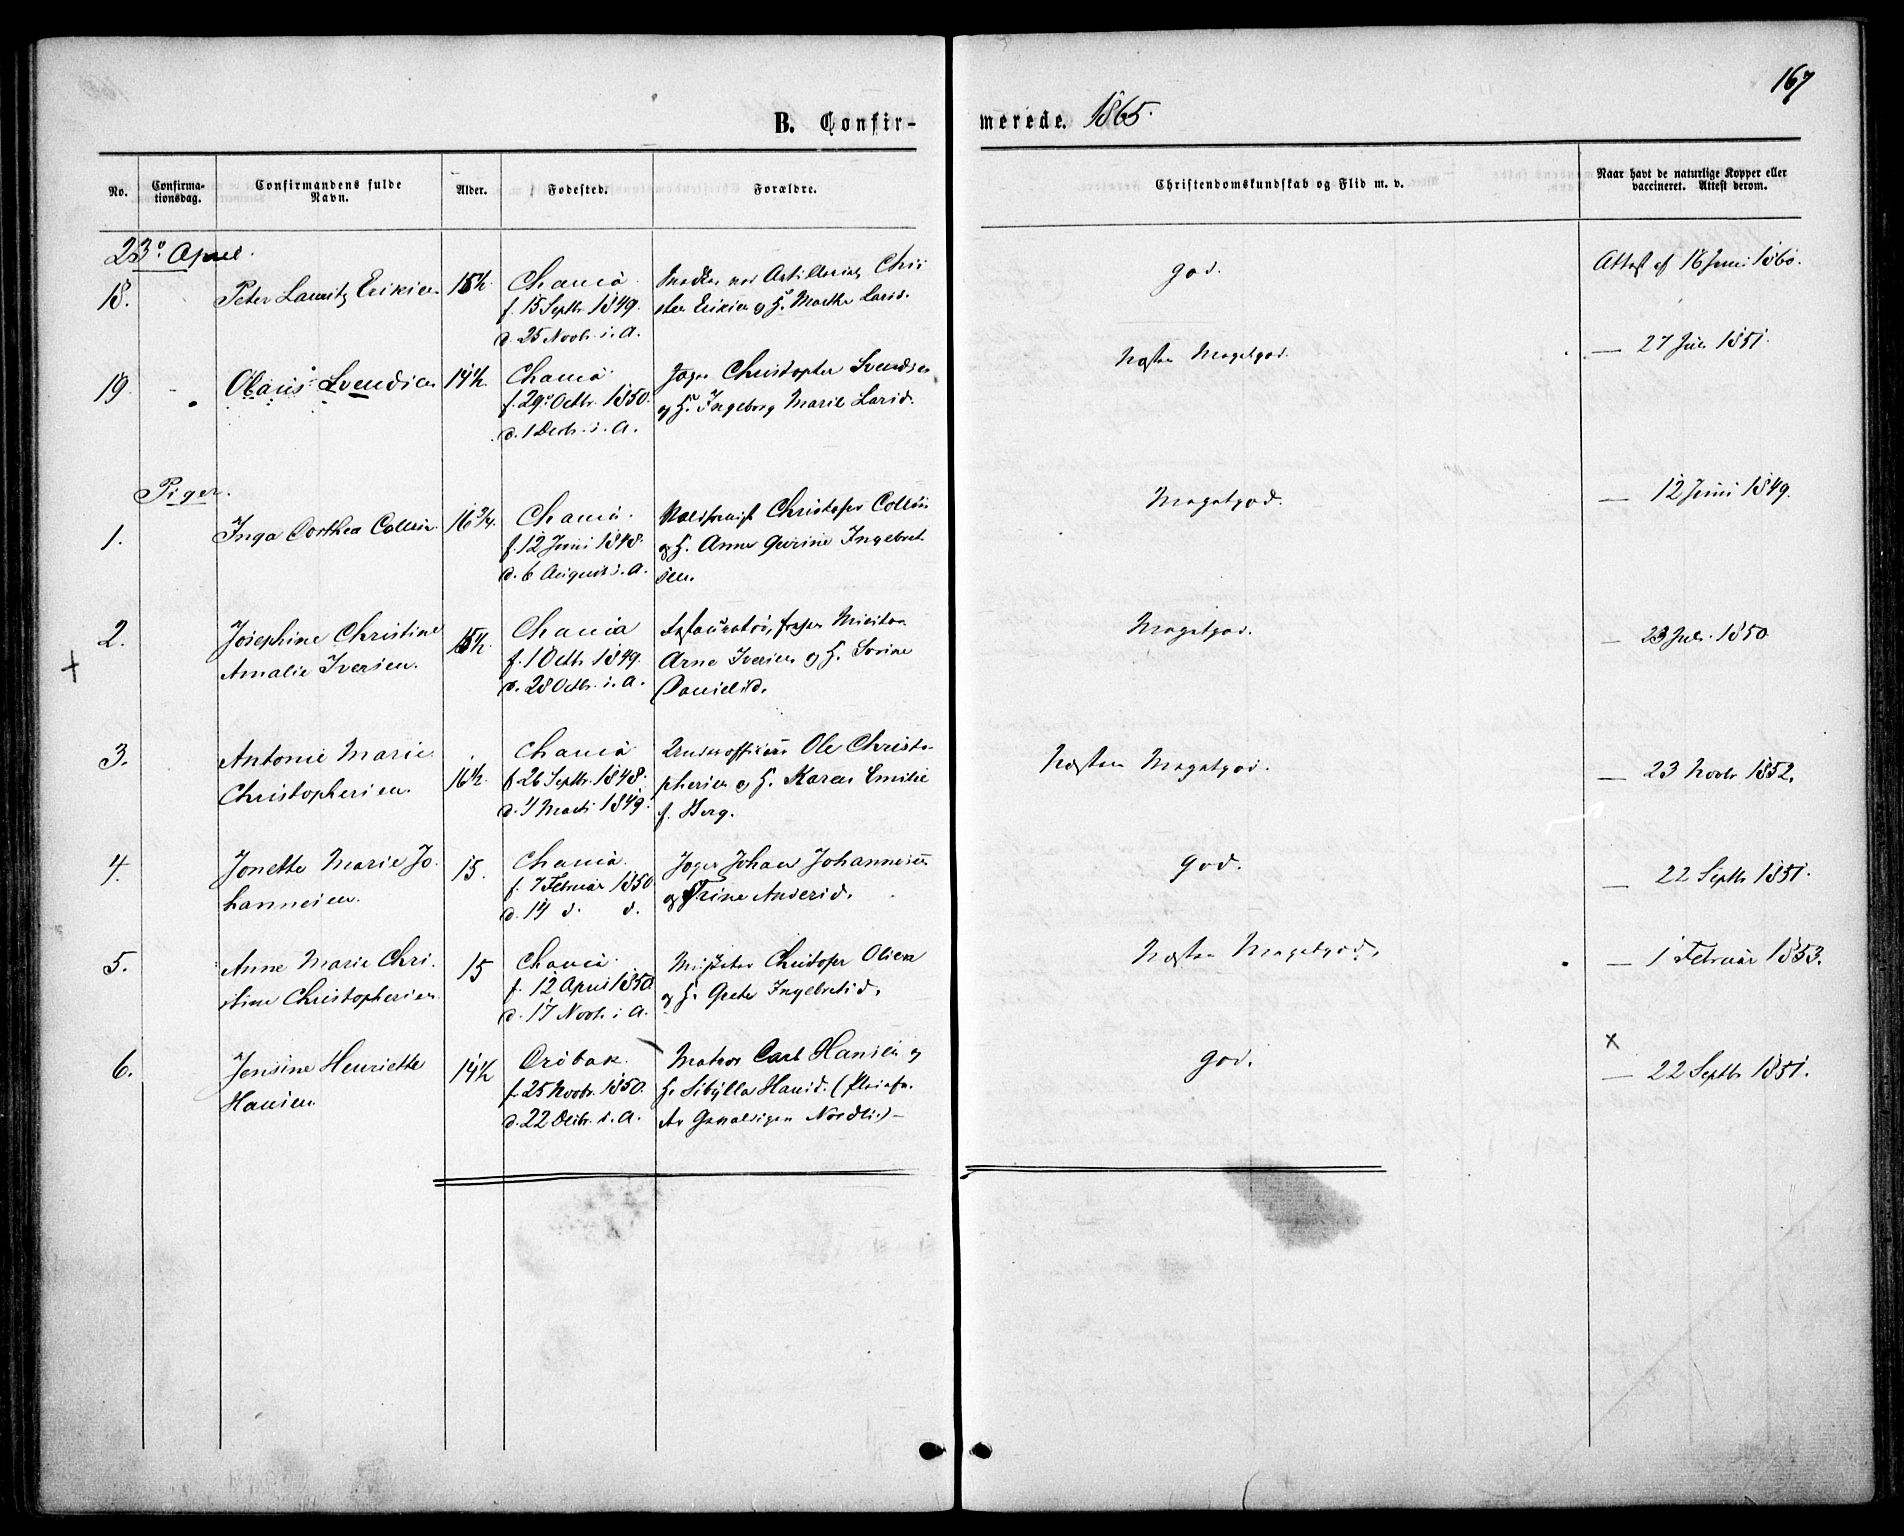 167
B. Confir-
merede. 1865.
No.
Confirma-
tionsdag.
Confirmandens fulde
Navn.
Alder.
Fødested.
Forældre.
Christendomskundskab og Flid m. v.
Naar havt de naturlige Kopper eller
vaccineret. Attest derom.
23° April.
18.
Peter Lauritz Eriksen
15½
Chania
f. 15 Septbr. 1849.
d. 25 Novbr. i. A.
ved Artilleriet Chri
sten Eriksen og H. Marthe Larsd.
god.
Attest af 16 Juni 1860.
19.
Olaus Svendsen
14½
Chania
f. 29 Octbr. 1850.
d. 1 Decbr. i. A.
Christopher Svendsen
og H. Ingeborg Marie Larsd.
Næsten Megetgod.
— 27 Juli 1851.
Piger.
1.
Inga Dorthea Collin
16 3/4.
Chania.
f. 12 Juni 1848.
d. 6 August i. A.
Christofer Collin
og H. Anne Gurine Ingebret
sen.
Megetgod.
— 12 Juni 1849.
2.
Josephine Christine
Amalie Iversen.
15½
Chania
f. 1 Octbr. 1849.
d. 28 Octbr. i. A.
Arne Iversen og H. Sørine
Danielsd.
Megetgod.
— 23 Juli 1850
3.
Antonie Marie
Christophersen
16½
Chania
f. 26 Septbr. 1848.
d. 4 Marts 1849.
Underofficer Ole Christo-
phersen og H. Karen Emilie
f. Berg.
Næsten Megetgod.
— 23 Novbr 1852.
4.
Jonette Marie Jo-
hannesen.
15.
Chania.
f. 7 Februar 1850
d. 14 d. d.
Johan Johannesen
og Trine Andersd.
god.
— 22 Septbr 1851.
5.
Anne Marie Chri-
stine Christophersen
15
Chania.
f. 12 April 1850.
d. 17 Novbr. i. A.
Christofer Olsen
og H. Grete Ingebretsd.
Næsten Megetgod.
— 1 Februar 1853.
6.
Jensine Henriette
Hansen
14½
Drøbak.
f. 25 Novbr. 1850.
d. 22 Decbr. i. A.
Matros Carl Hansen og
H. Sibylla Hansd. (Pleiefa.
Nordlie) —
god.
x
— 22 Septbr 1851.